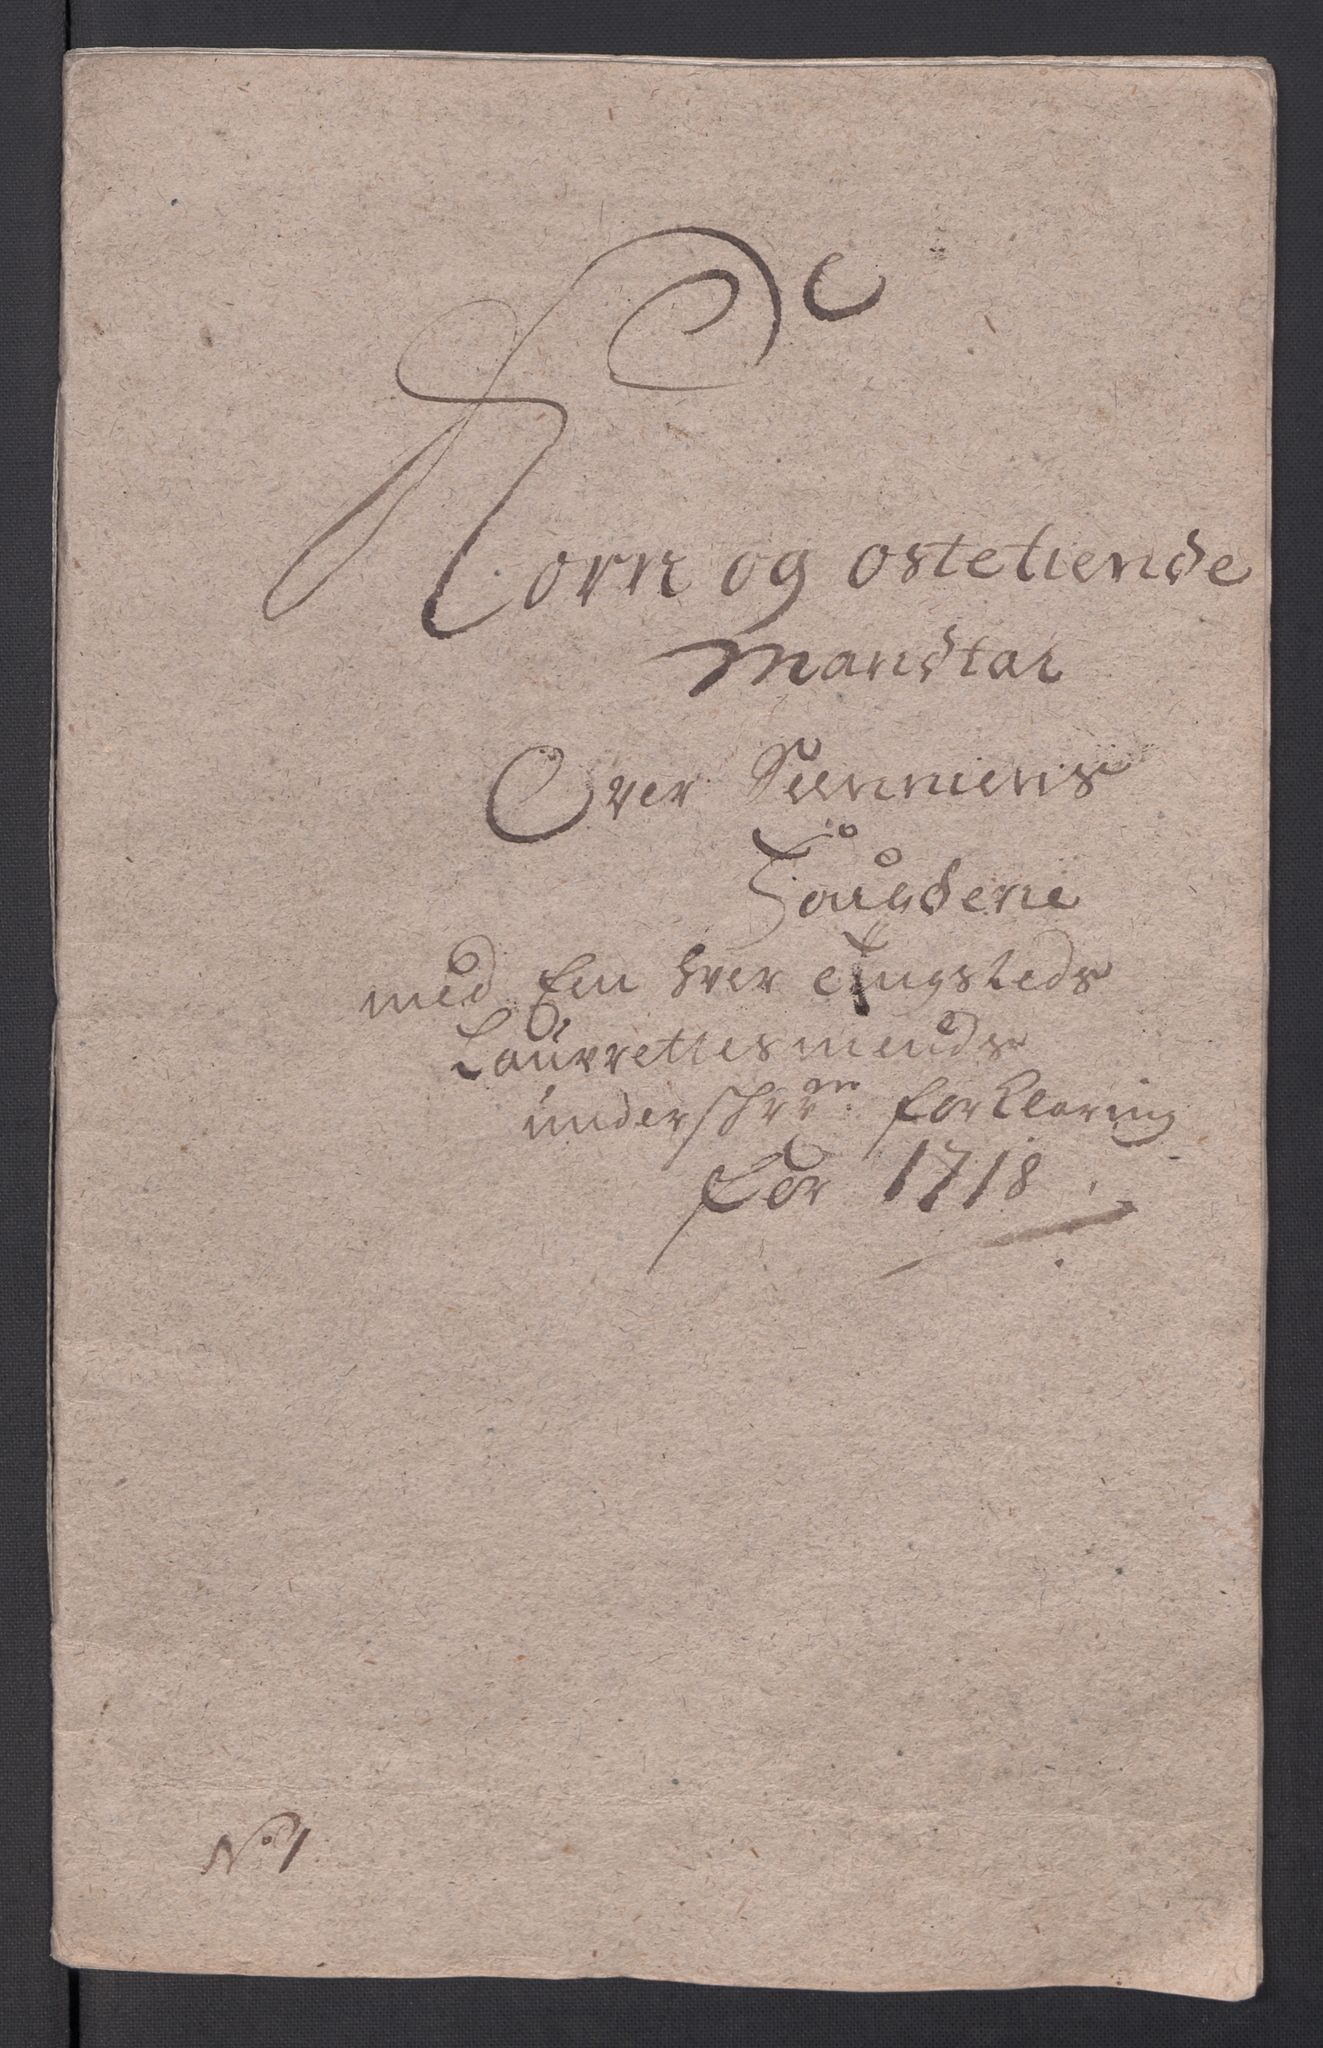 Korn og ostetiende
Mandtal
Over Sunniens
Fougderie
med En hver tingsteds
Laurrettesmends
underschr:ne forklaring
for 1718
No 1